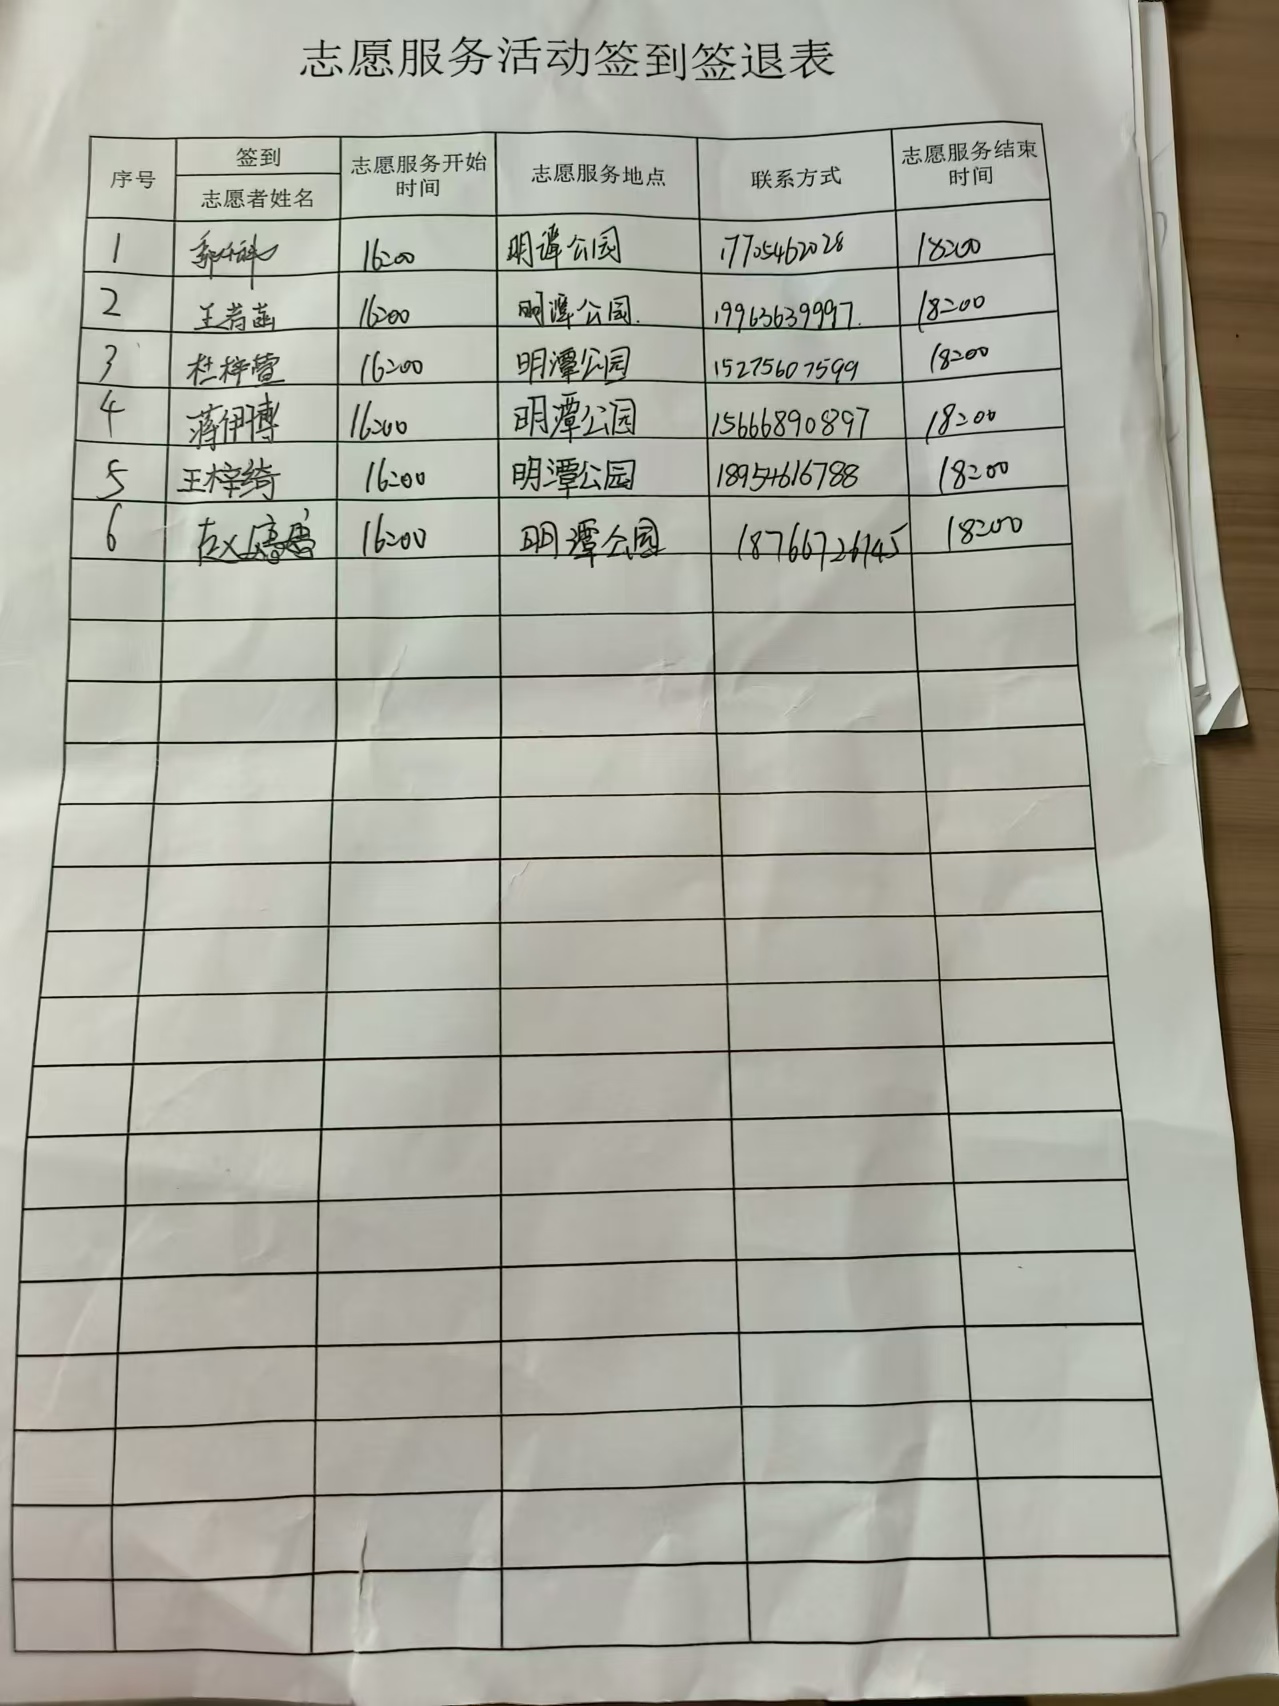 志愿服务活动签到签退表
序号 签到 志愿者姓名 志愿服务开始时间 志愿服务地点 联系方式 志愿服务结束时间
1 16:00 明潭公园 17705462028 18:00
2 王若菡 16:00 明潭公园. 19963639997. 18:00
3 杜梓萱 16:00 明潭公园 15275607599 18:00
4 蒋伊博 16:00 明潭公园 15666890897 18:00
5 王梓绮 16:00 明潭公园 18954616788 18:00
6 16:00 明潭公园 18:00